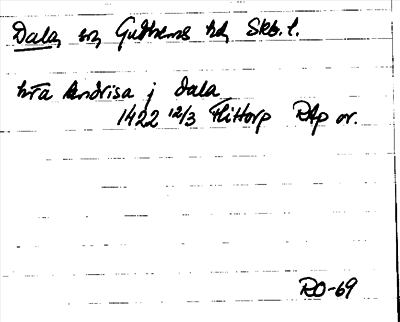 Dala, sn, Gudhems hd, Skb. l.
hra Andrisa j dala
1422 12/3 Flittorp RAp or.
RO-69